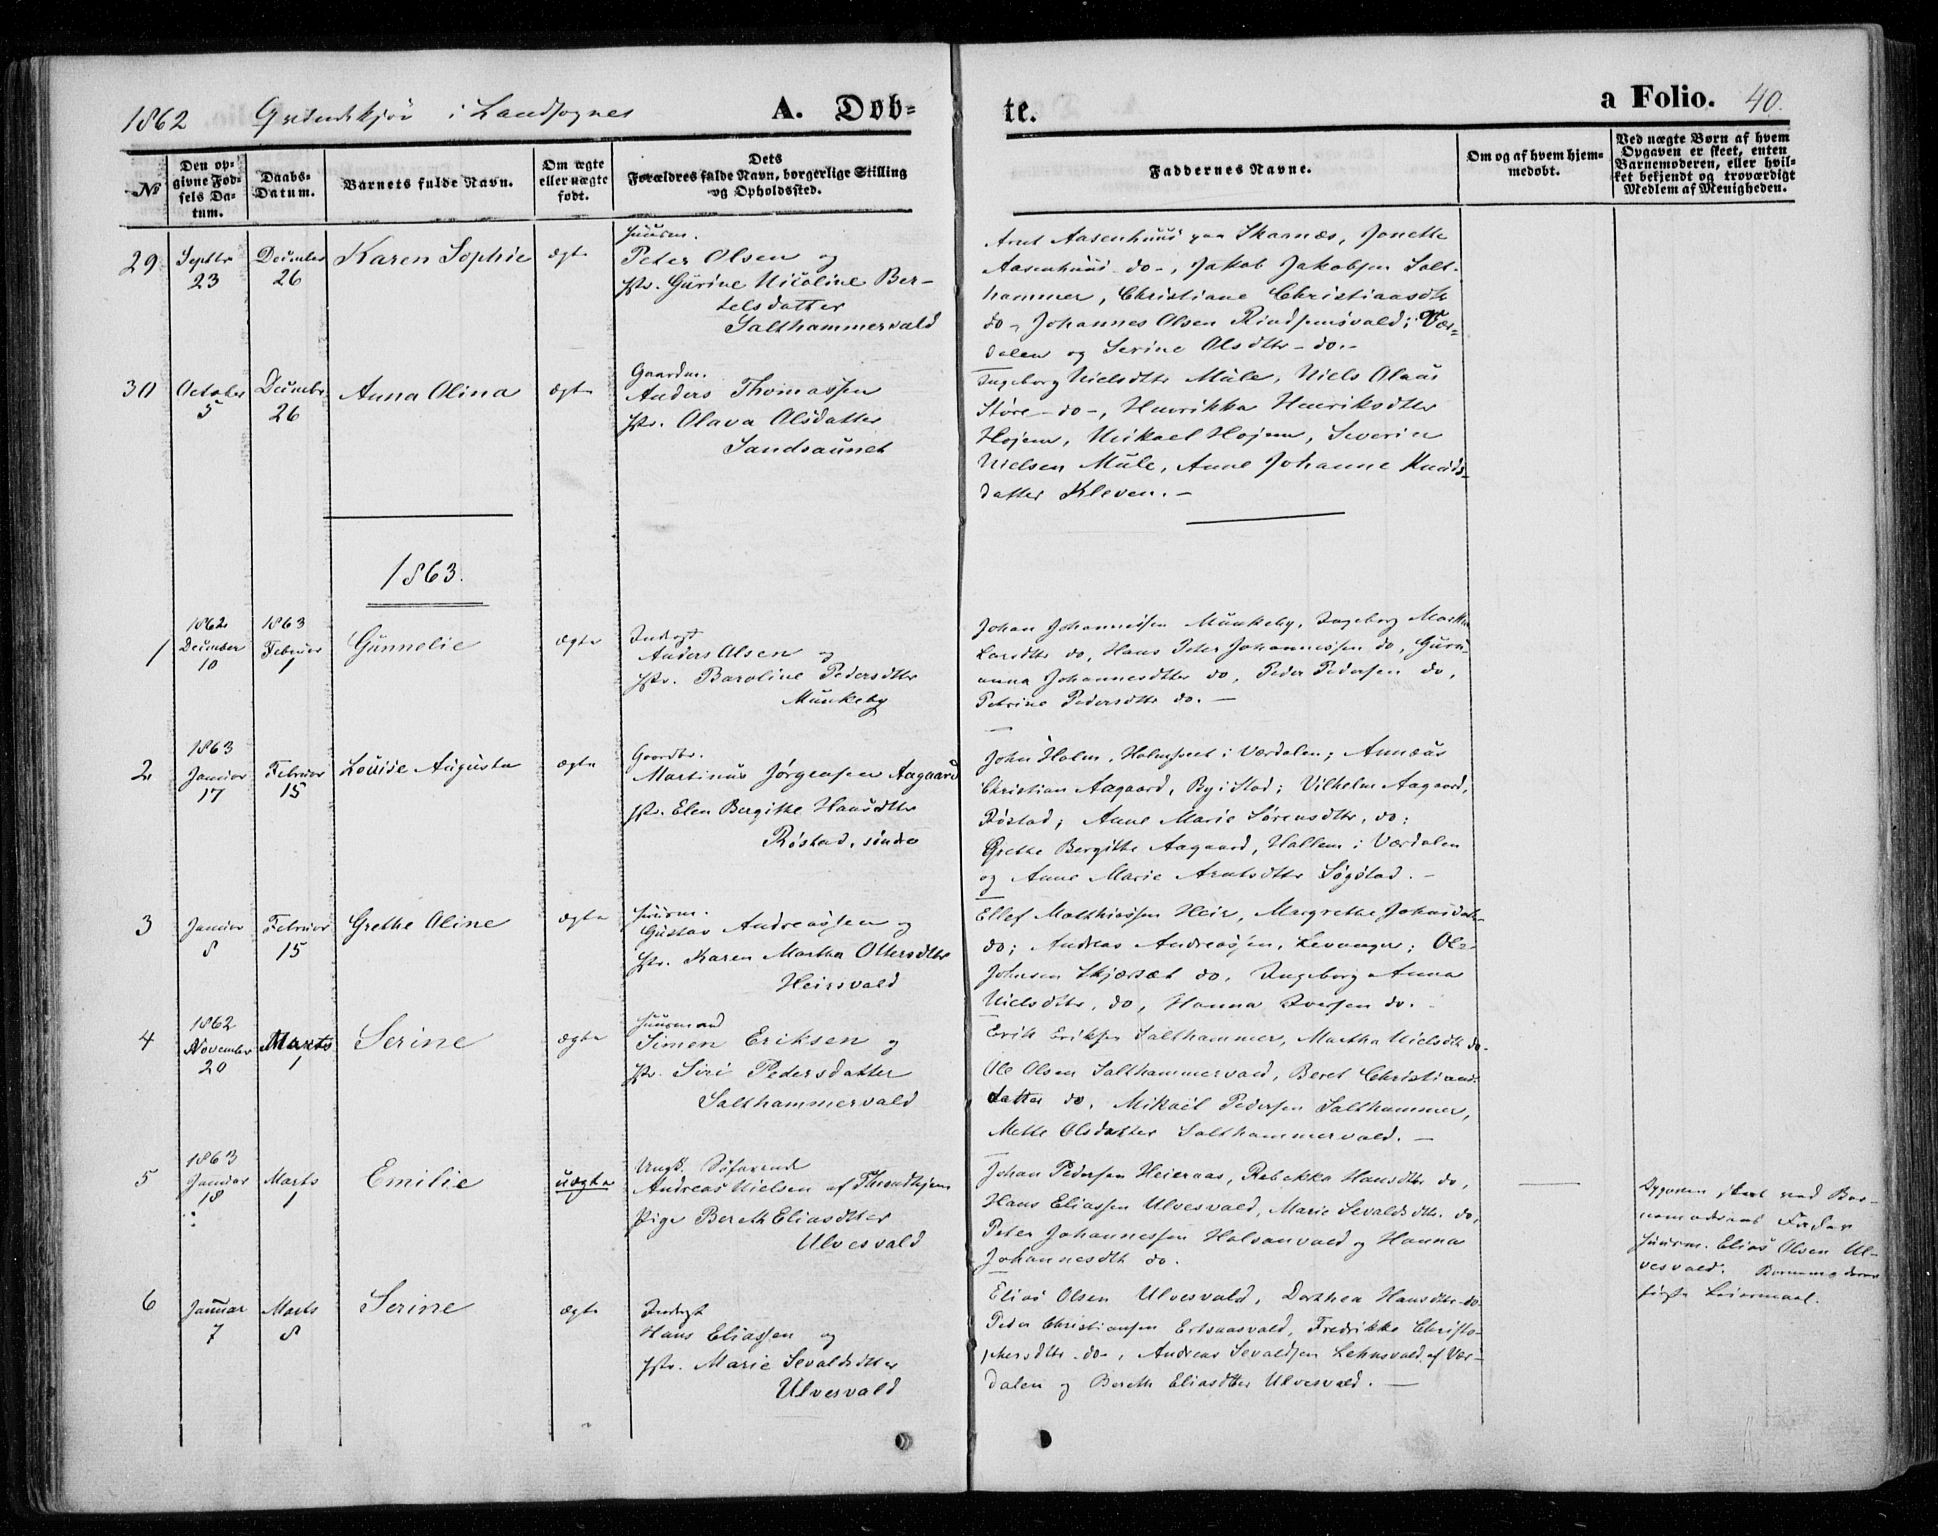 1862 i Landsognet A. Døb-
te. a Folio. 40.
№
Den op-
givne Fød-
sels Da-
tum.
Daabs-
Datum.
Barnets fulde Navn.
Om ægte
eller uægte
født.
Dets
Forældres fulde Navn, borgerlige Stilling
og Opholdssted.
Faddernes Navne.
Om og af hvem hjem-
medøbt.
Ved uægte Børn af hvem
Opgaven er skeet, enten
Barnemoderen, eller hvil-
ket bekjendt og troværdigt
Medlem af Menigheden.
29 Septbr 23 December 26 Karen Sophie ægte
Huusm.
Peter Olsen og
Hstr. Gurine Nicoline Ber-
telsdatter
Salthammervald
Arnt Aasenhuus paa Skaanæs, Jonette
Aasenhuus do, Jakob Jakobsen Salt-
hammer, Christiane Christiansdtr
do, Johannes Olsen i Vær-
dalen og Serine Olsdtr do.
30 October 5 Decembr 26 Anna Olina ægte
Gaardm.
Anders Thomassen
Hstr. Olava Olsdatter
Sandsaunet
Ingeborg Nielsdtr Mule, Niels Olaus
Støre do, Henrikka Henriksdtr
Hojem, Mikael Hojem, Severin
Nielsen Mule, Anne Johanne Knuds-
datter Kleven.
1863.
1 1862 December 10 1863 Februar 1 Gunnelie ægte
Inderst
Anders Olsen og
Hstr. Baroline Pedersdtr
Munkeby
Johan Johannessen Munkeby, Ingeborg Martha
Larsdtr do, Hans Peter Johannessen do, Guru-
anna Johannesdtr do, Peder Pedersen do,
Petrine Pedersdtr do.
2 1863 Januar 17 Februar 15 Louise Augusta ægte
Gaardbr.
Martinus Jørgensen Aagaard
Hstr. Elen Bergitte Hansdtr
Røstad, søndre
John Holm, Holmsveet i Værdalen; Annæus
Christian Aagaard, By i Stod; Vilhelm Aagaard,
Røstad; Anne Marie Sørensdtr, do;
Grethe Bergitte Aagaard, Hallem i Værdalen
og Anne Marie Arntsdtr Søgstad.
3 Januar 8 Februar 15 Grethe Oline ægte
Huusm.
Gustav Andreassen og
Hstr. Karen Martha Ottersdtr
Heirsvald
Ellef Matthiassen Heir, Margrethe Johnsdatr
do; Andreas Andreassen, Levanger; Ole
Johnsen Skjæsæt do, Ingeborg Anna
Nielsdtr, do, Hanna Iversen do.
4 1862 November 20 Marts 1 Serine ægte
Huusmand
Simon Eriksen og
Hstr. Siri Pedersdatter
Salthammervald
Erik Eriksen Salthammer, Martha Nielsdtr do.
Ole Olsen Salthammervald, Beret Christians-
datter do, Mikael Pedersen Salthammer,
Mette Olsdatter Salthammervald.
5 1863 Januar 18 Marts 1 Emilie uægte
Ungk. Søfarende
Andreas Nielsen af Throndhjem
Pige Bereth Eliasdtr
Ulvesvald
Johan Pedersen Heieraas, Rebekka Hansdtr do,
Hans Eliassen Ulvesvald, Marie Sevaldsdtr do,
Peter Johannessen Halsanvald og Hanna
Johannesdtr do.
Opgaven skeet ved Bar-
nemoderens Fader
Huusm. Elias Olsen Ul-
vesvald. Barnemoderens
første Leiermaal.
6 Januar 7 Marts 8 Serine ægte
Inderst
Hans Eliassen og
Hstr. Marie Sevaldsdtr
Ulvesvald
Elias Olsen Ulvesvald, Dorthea Hansdtr do
Peder Christiansen Ertsaasvald, Fredrikke Christo-
phersdtr do, Andreas Sevaldsen Lehnsvald af Vær-
dalen og Bereth Eliasdtr Ulvesvald.